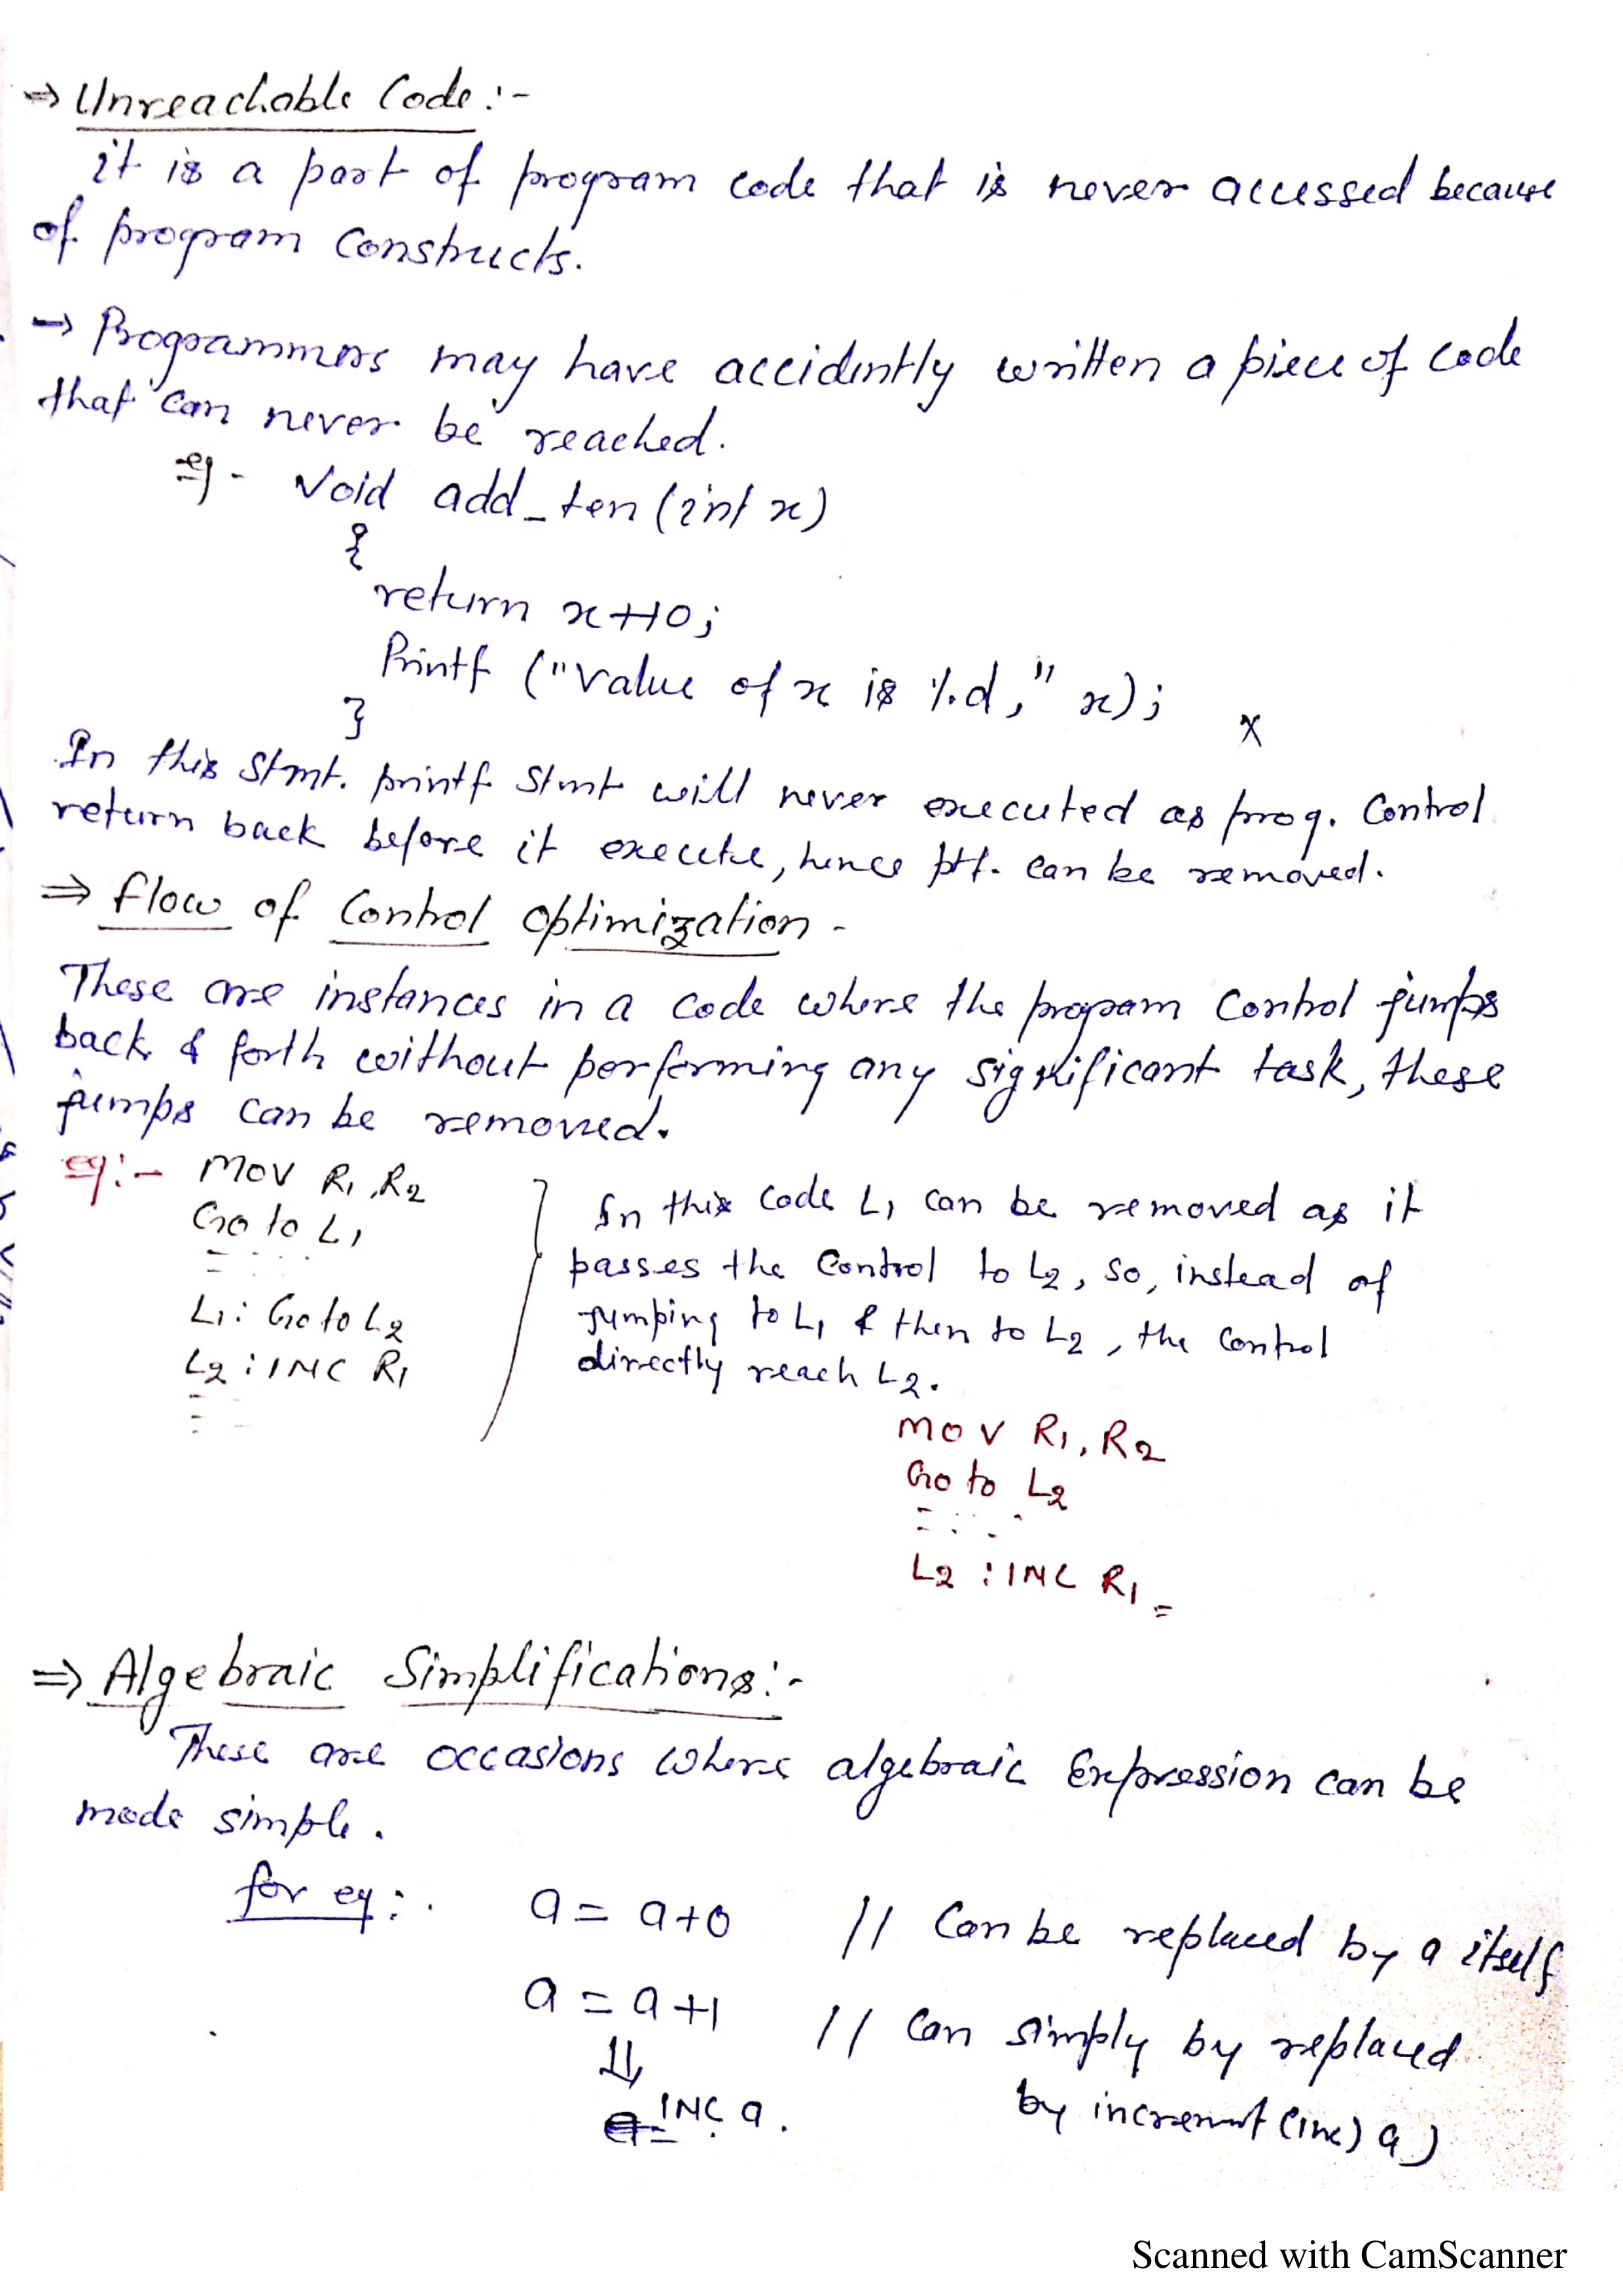 ⇒ Unreachable Code:-
it is a part of program code that is never accessed because
of program constructs.
→ Programmers may have accidently written a piece of code
that can never be reached.
eg - Void add_ten (int x)
{
return x+10;
Printf ("Value of x is %d," x);
} x
In this stmt. printf stmt will never executed as prog. Control
return back before it execute, hence ptf. can be removed.
⇒ flow of Control Optimization -
These are instances in a code where the program Control jumps
back & forth without performing any significant task, these
jumps can be removed.
eg:- MOV R1, R2
Go to L1
L1: Go to L2
L2 : INC R1
In this code L1 can be removed as it
passes the Control to L2, So, instead of
jumping to L1 & then to L2, the Control
directly reach L2.
MOV R1, R2
Go to L2
L2 : INC R1
⇒ Algebraic Simplifications:-
These are occasions where algebraic Expression can be
made simple.
for eg:. a = a+0 // Can be replaced by a itself
a = a+1 // Can simply by replaced
⇓
INC a. by increment (inc) a)
Scanned with CamScanner